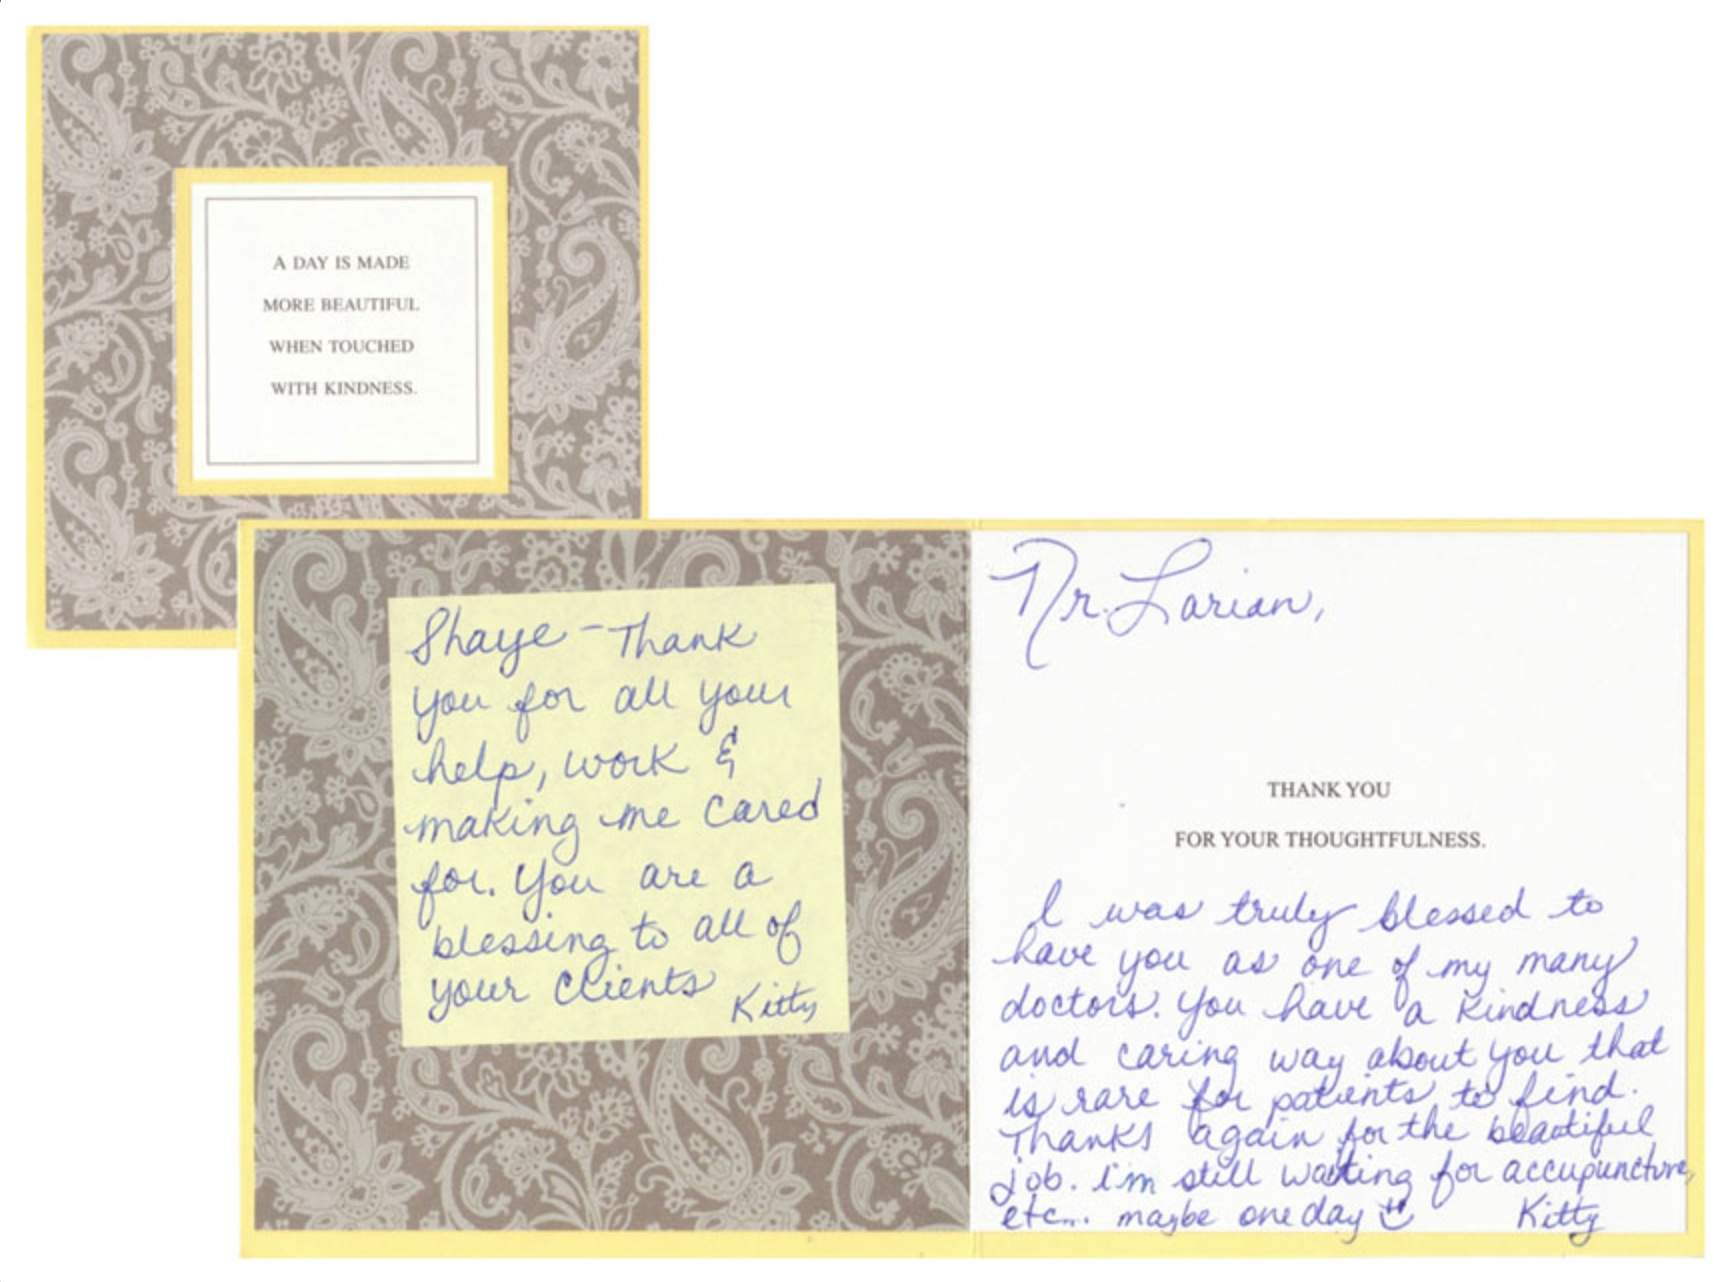 A DAY IS MADE
MORE BEAUTIFUL
WHEN TOUCHED
WITH KINDNESS.
Shaye - Thank
you for all your
help, work &
making me cared
for. You are a
blessing to all of
your clients
Kitty
Dr. Larian,
THANK YOU
FOR YOUR THOUGHTFULNESS.
I was truly blessed to
have you as one of my many
doctors. You have a kindness
and caring way about you that
is rare for patients to find.
Thanks again for the beautiful
job. I'm still waiting for accupuncture,
etc... maybe one day
Kitty